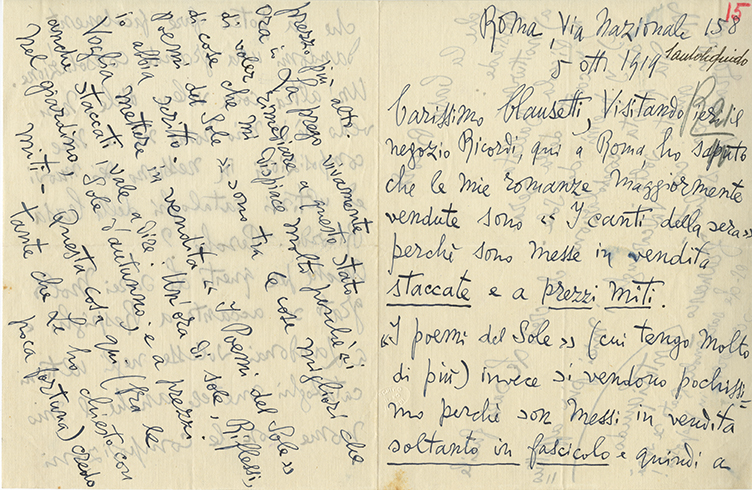 15
Roma, Via Nazionale 158
5 ott 1919 Santoliquido
Carissimo Clausetti, Visitando ieri il
negozio Ricordi, qui a Roma, ho saputo
che le mie romanze maggiormente
vendute sono « I canti della sera »
perchè sono messe in vendita
staccate e a prezzi miti.
« I poemi del Sole » (cui tengo molto
di più) invece si vendono pochissi-
mo perchè son messi in vendita
soltanto in fascicolo e quindi a
prezzo più alti.
La prego vivamente
ora di rimediare a questo stato
di cose che mi dispiace molto perchè i
poemi del Sole » sono tra le cose migliori che
io abbia scritto.
Voglia mettere in vendita « I Poemi del Sole »
anche staccati, vale a dire: Un'ora di sole, Riflessi,
nel giardino, Sole d'autunno, e a prezzi
miti - Questa cosa qui (fra le
tante che Le ho chiesto con
poca fortuna) credo